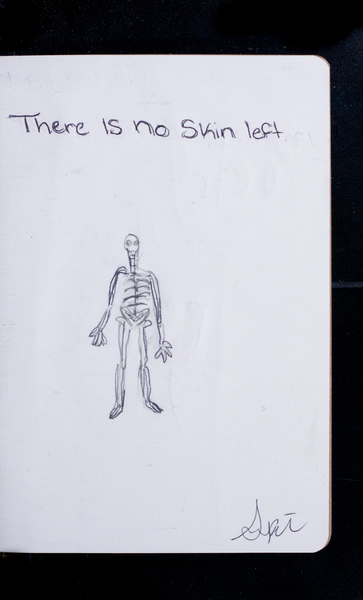 There is no Skin left